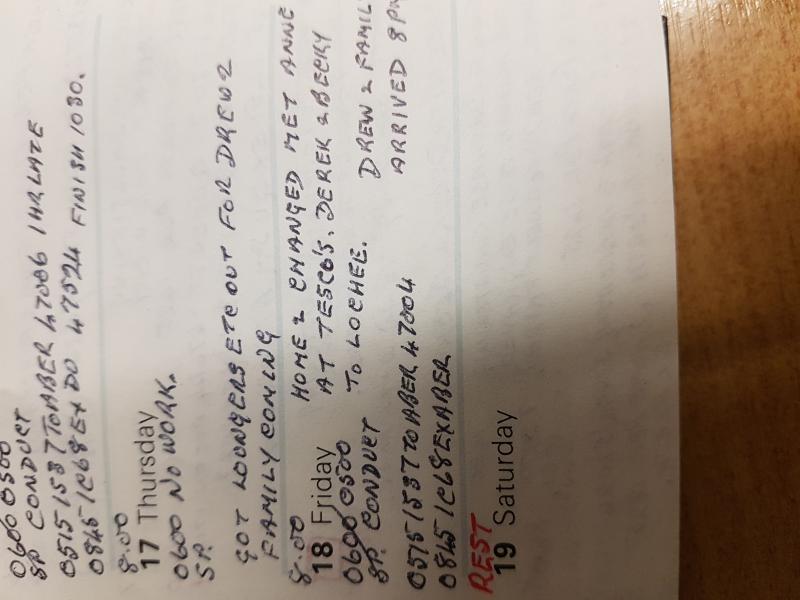 0600 0500
SP. CONDUCT
0515 1S37 TO ABER 47006 1 HR LATE
0845 1C68 EX DO 47524 FINISH 1030.
8.00
17 Thursday
0600 NO WORK.
SP.
GOT LOUNGERS ETC OUT FOR DREW &
FAMILY COMING
8.00 HOME & CHANGED MET ANNE
18 Friday AT TESCO'S. DEREK & BECKY
0600 0500 TO LOCHEE. DREW & FAMIL
SP. CONDUCT ARRIVED 8 PM
0515 1S37 TO ABER 47004
0845 1C68 EX ABER
REST
19 Saturday